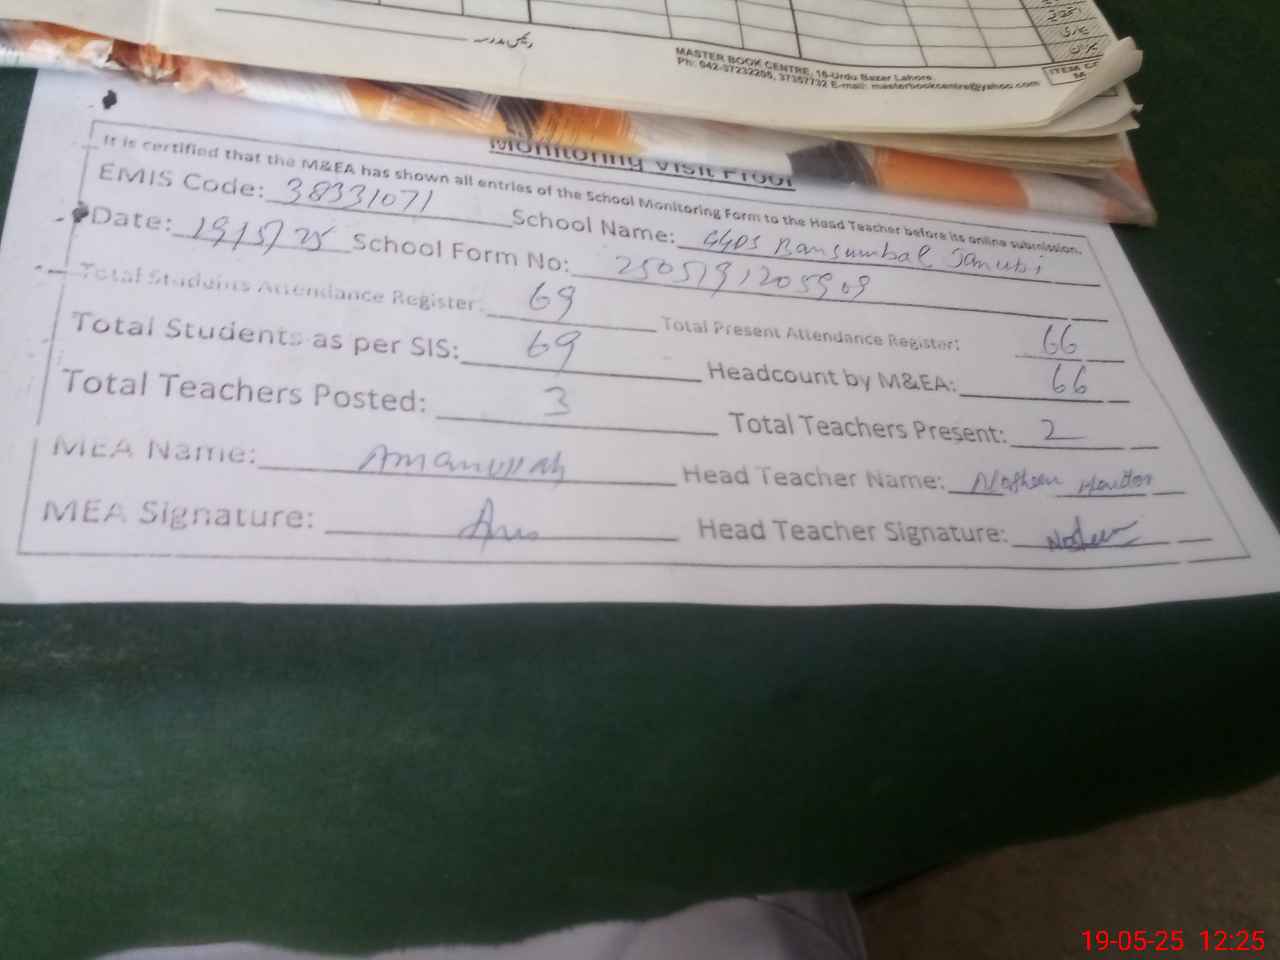 رئیس مدرسہ
MASTER BOOK CENTRE, 16-Urdu Bazar Lahore.
Ph: 042-37232205, 37357732 E-mail: masterbookcentre@yahoo.com
Monitoring Visit Proof
It is certified that the M&EA has shown all entries of the School Monitoring Form to the Head Teacher before its online submission.
EMIS Code: 38331071 School Name: GGPS Bansumbal Janubi
Date: 19/5/25 School Form No: 2505191205909
Total Students Attendance Register: 69 Total Present Attendance Register: 66
Total Students as per SIS: 69 Headcount by M&EA: 66
Total Teachers Posted: 3 Total Teachers Present: 2
MEA Name: Amanullah Head Teacher Name: Nosheen
MEA Signature: Head Teacher Signature: Nosheen
19-05-25 12:25